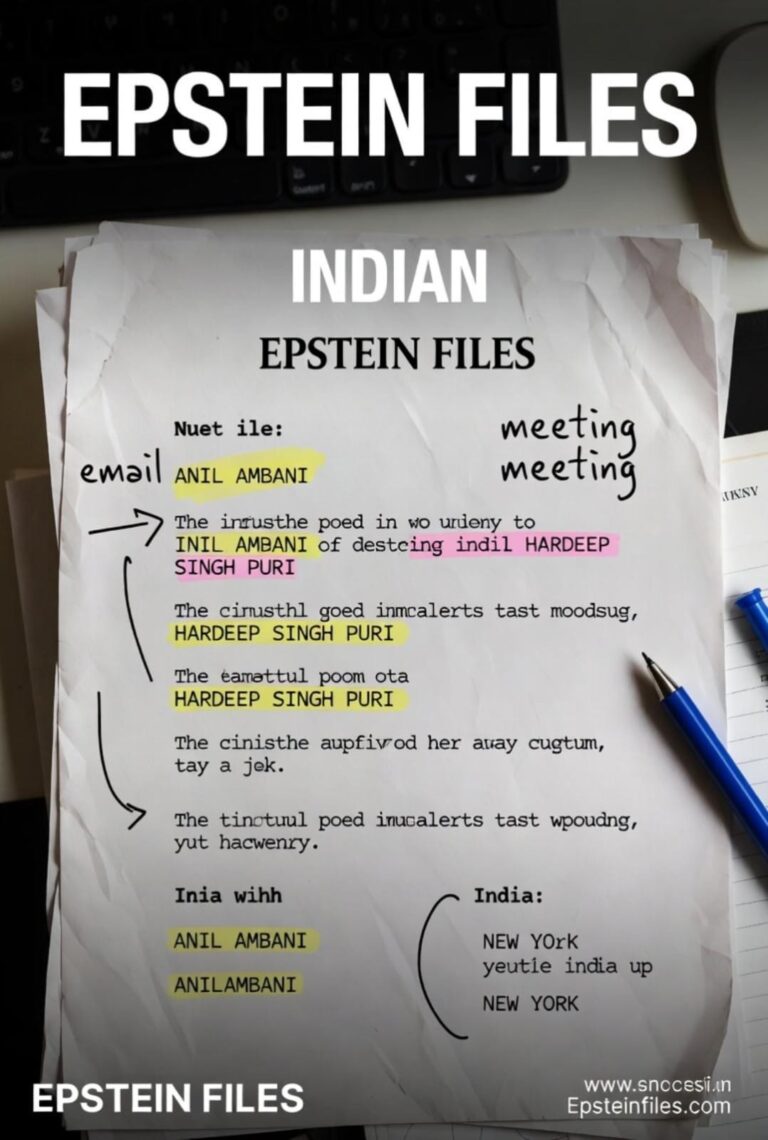 EPSTEIN FILES
INDIAN
EPSTEIN FILES
Nuet ile:
meeting
meeting
email ANIL AMBANI
The inrusthe poed in wo urdeny to
INIL AMBANI of destcing indil HARDEEP
SINGH PURI
The cinusthl goed inmcalerts tast moodsug,
HARDEEP SINGH PURI
The eamattul poom ota
HARDEEP SINGH PURI
The cinisthe aupfivod her away cugtum,
tay a jek.
The tinctuul poed inucalerts tast wpoudng,
yut hacwenry.
Inia wihh
ANIL AMBANI
ANILAMBANI
India:
NEW YOrK
yeutle india up
NEW YORK
EPSTEIN FILES
Epsteinfiles.com